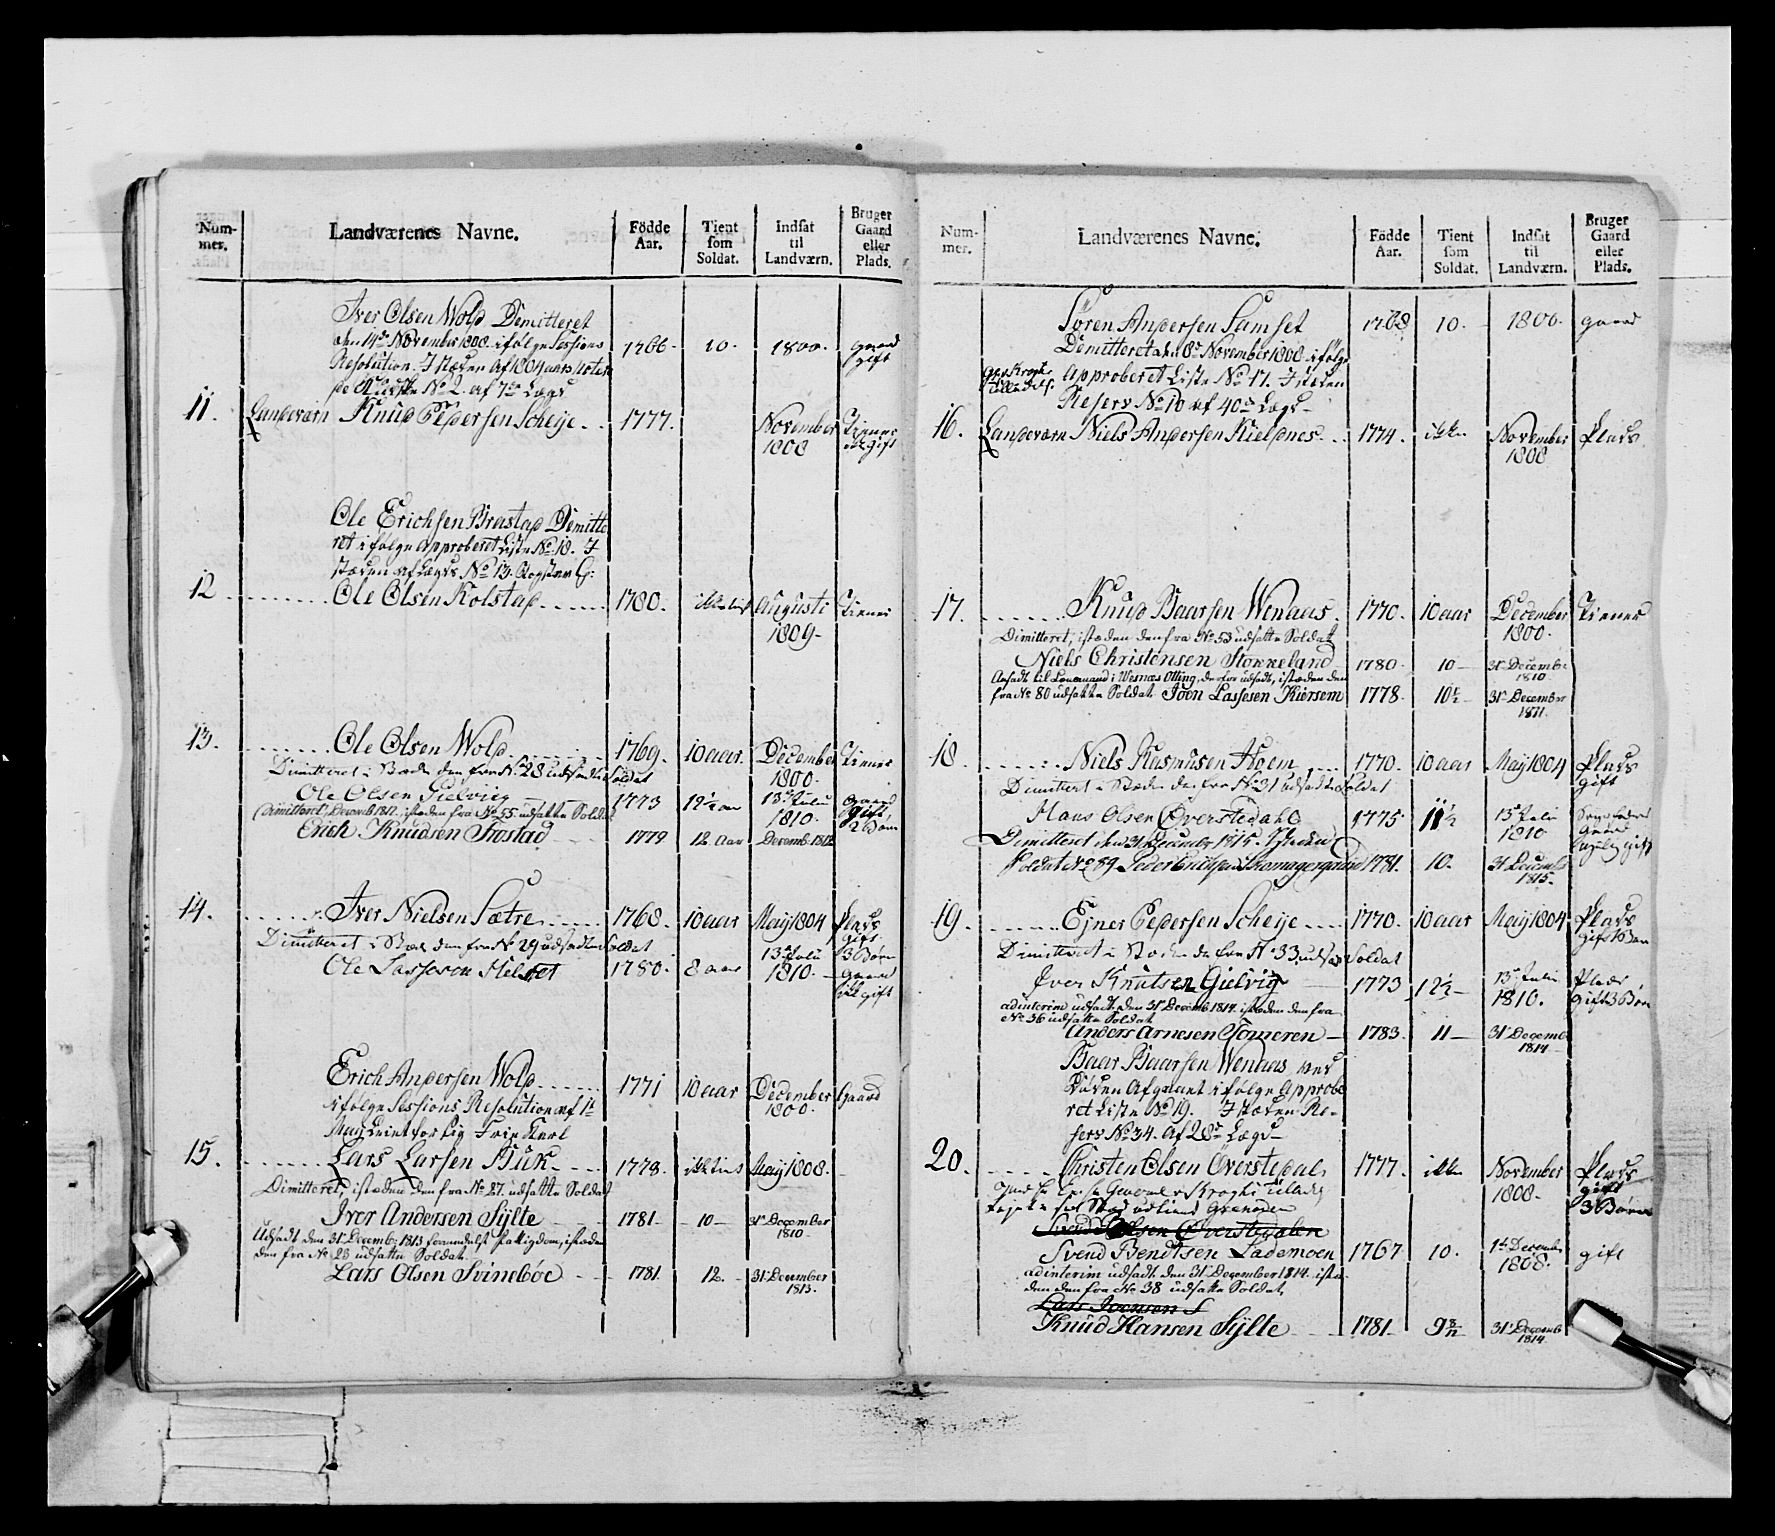 Num-
mer.
Landværenes Navne.
Födde
Aar.
Tient
som
Soldat.
Indsat
til
Landværn.
Bruger
Gaard
eller
Plads.
Iver Olsen Wold Demitteret
den 14de November 1808 ifölge Sessions
1766. 10. 1800. gaard
gift
Resolution. I stæden af 1804 aars
No 2. af 7de Lægd
11. Landværn Knud Pedersen Scheije 1777. November Tiener
1808
Ole Erichsen Brastad Demitte
ret ifölge Approberet Liste No 18. I
stæden af Lægds No 13.
12 Ole Olsen Kolstad 1780. Augusti Tiener
1809
13. Ole Olsen Wold 1769. 10 aar. December Tiener
1800.
Dimitteret i Stæden den fra No 28 udsatte Soldat
Ole Olsen Gielvig 1773 12½ aar 13de Julii Gaard
1810. gift
2 Börn
(Dimitteret, Decemb: 1812, istæden fra No 55 udsatte Soldat
Erich Knudsen Frostad 1779 12 aar Decemb: 1812
14. Iver Nielsen Sætre 1768. 10 aar May 1804 Plads
gift
3 Börn
Dimitteret i Stæd den fra No 29 udsatte Soldat
Ole Lasseson Helset 1780. 8 aar 13de Julii 1810. Gaard
gift
Erich Andersen Wold 1771 10 aar December Gaard
1800.
ifölge Sessions Resolution af 1te
May
15. Lars Larsen Buk 1778. ikke tient May 1808.
Dimitteret, istæden den fra No 27. udsatte Soldat
Iver Andersen Sylte 1781 10 31te December
1810.
Udsadt den 31te Decemb: 1813 formedelst Fattigdom, istæden
den fra No 23 udsatte Soldat
Lars Olsen Svineböe 1781. 12. 31te December
1813.
Num-
mer.
Landværenes Navne.
Födde
Aar.
Tient
som
Soldat.
Indsat
til
Landværn.
Bruger
Gaard
eller
Plads.
Sören Andersen Samset 1768 10. 1800. gaard
Demitteret den 8de November 1808 ifölge
Approberet Liste No 17. I stæden
Reserv No 10 af 40de Lægd
16. Landværn Niels Andersen Kieldsnes 1774. ikke November Plads
1808
17. Knud Baarsen Wenaas 1770. 10 aar December Tiener
1800.
Dimitteret, istæden den fra No 53 udsatte Soldat
Niels Christensen Stokkeland 1780. 10 31te December
1810
Ansadt til Lensmand i Wesnæs Otting, derfor udsadt, istæden den
fra No 80 udsatte Soldat Joen Lassesen Kiörsem 1778. 31te December
1811.
18. Niels Rasmusen Hoem 1770. 10 aar May 1804 Plads
gift
Dimitteret i Stæden den fra No 31 udsadte Soldat
Hans Olsen Överstedahl 1775 11½ 13de Julii
1810
Gaard
Dimitteret den 31 December 1815. I stæden
Soldat No 89 Peder Erichsen 1781. 10. 31 Decemb
1815.
19. Ejner Pedersen Scheije 1770. 10 aar May 1804 Plads
gift
Dimitteret i Stæden den fra No 33 udsadt Soldat
Iver Knutsen Gielvig 1773 12½ 13de Julii Plads
1810. gift 3 Börn
adinterim udsadt den 31te Decemb 1814 istæden den fra
No 36 udsatte Soldat
Anders Arnesen Tonneren 1783. 11 31te Decemb
1814
Baar Baarsen Wenaas ved
Döden Afgaaet ifölge Approbe
ret Liste No 19. I stæden Re-
serv No 34. Af 28de Lægd
20. Christen Olsen Överstedal 1777. ikke November Plads
1808. gift
3 Börn
Svend Olsen Överstedalen
Svend Bendtsen Lademoen 1767 10. 1te December gift
1808.
adinterim udsadt den 31te December 1814 istæ
den den fra No 38 udsatte Soldat,
Lars Joensen S
Knud Hansen Sylte 1781. 31te Decemb
1814